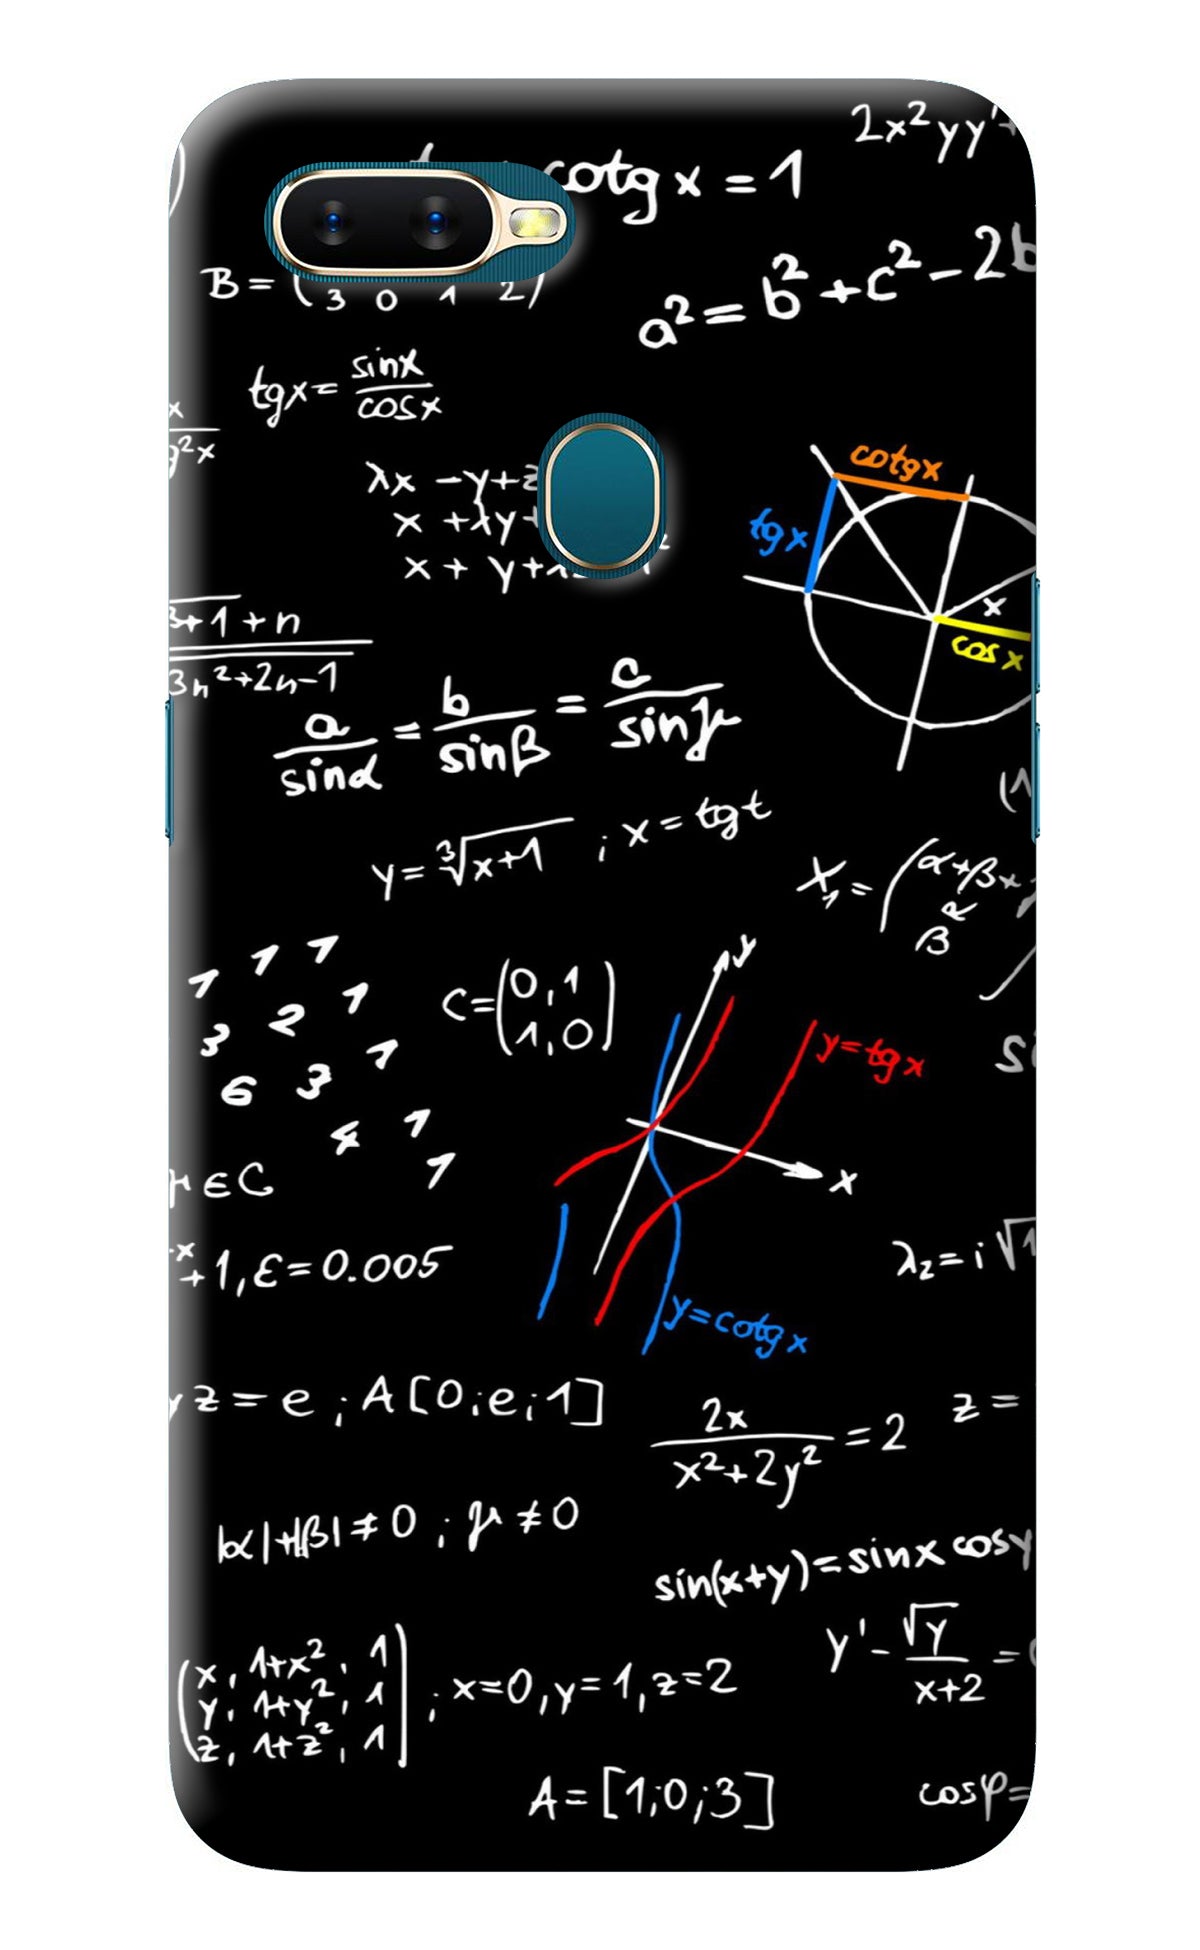 2x²yy'+
cotg x = 1
B = ( 3 0 1 2 )
a² = b² + c² - 2b
tgx = sinx / cosx
x / g²x
λx - y + z
x + λy +
x + y +
cotgx
tgx
x
cos x
3+1 + n / 3n²+2n-1
a / sinα = b / sinβ = c / sinγ
y = ∛x+1 ; x = tgt
X₁ = ( α+βx
β R
1 1 1
3 2 1
6 3 1
4 1
1
C = ( 0,1
1,0 )
y
y=tgx
x
y=cotgx
si
μ ∈ C
x + 1, ε = 0.005
λ₂ = i √1
yz = e ; A[0;e;1]
2x / x²+2y² = 2
z =
|α|+|β| ≠ 0 ; μ ≠ 0
sin(x+y) = sinx cosy
y' - √y / x+2 =
( x, 1+x², 1
y, 1+y², 1
z, 1+z², 1 ) ; x=0, y=1, z=2
A = [1;0;3]
cosφ =